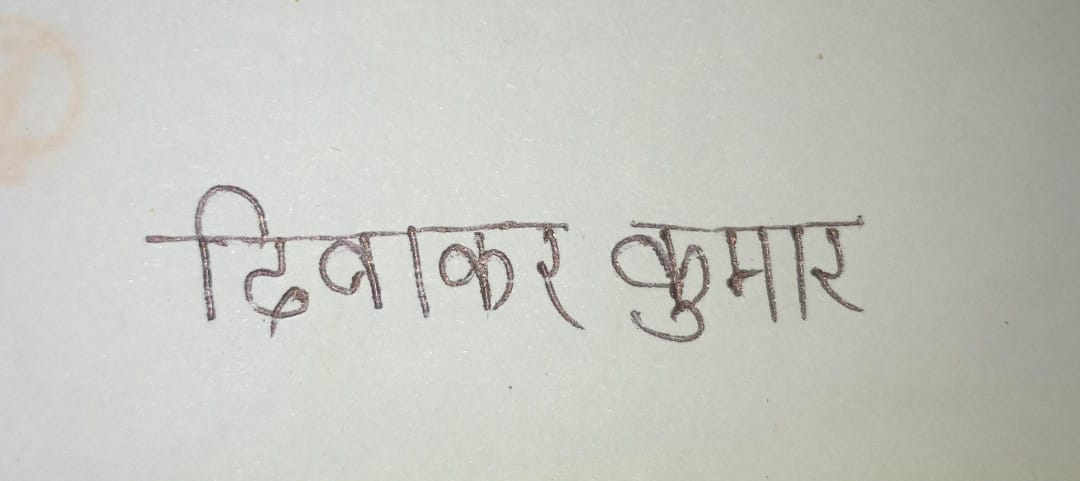 दिवाकर कुमार